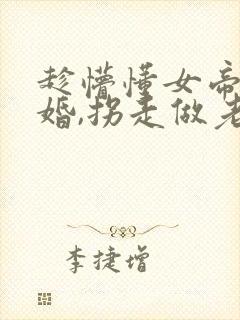 趁懵懂女帝
婚,拐走做老
李捷增